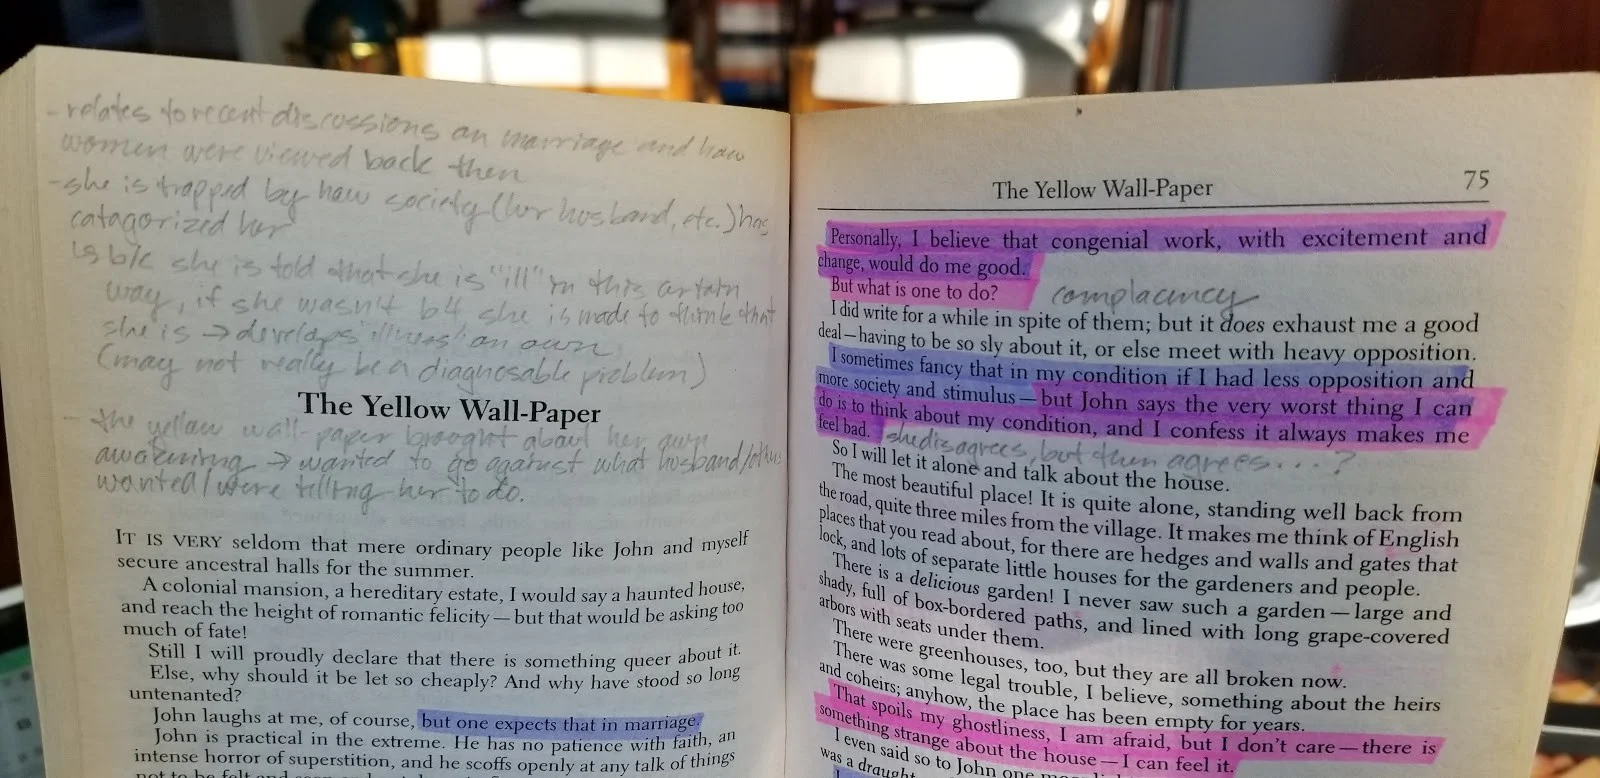 - relates to recent discussions on marriage and how
women were viewed back then
- she is trapped by how society (her husband, etc.) has
catagorized her
↳ b/c she is told that she is "ill" in this certain
way, if she wasn't b4 she is made to think that
she is → develops 'illness' on own
(may not really be a diagnosable problem)
The Yellow Wall-Paper
- the yellow wall-paper brought about her own
awakening → wanted to go against what husband/others
wanted/were telling her to do.
IT IS VERY seldom that mere ordinary people like John and myself
secure ancestral halls for the summer.
A colonial mansion, a hereditary estate, I would say a haunted house,
and reach the height of romantic felicity — but that would be asking too
much of fate!
Still I will proudly declare that there is something queer about it.
Else, why should it be let so cheaply? And why have stood so long
untenanted?
John laughs at me, of course, but one expects that in marriage.
John is practical in the extreme. He has no patience with faith, an
intense horror of superstition, and he scoffs openly at any talk of things
not to be felt and seen
The Yellow Wall-Paper 75
Personally, I believe that congenial work, with excitement and
change, would do me good.
But what is one to do? complacency
I did write for a while in spite of them; but it does exhaust me a good
deal — having to be so sly about it, or else meet with heavy opposition.
I sometimes fancy that in my condition if I had less opposition and
more society and stimulus — but John says the very worst thing I can
do is to think about my condition, and I confess it always makes me
feel bad. she disagrees, but then agrees....?
So I will let it alone and talk about the house.
The most beautiful place! It is quite alone, standing well back from
the road, quite three miles from the village. It makes me think of English
places that you read about, for there are hedges and walls and gates that
lock, and lots of separate little houses for the gardeners and people.
There is a delicious garden! I never saw such a garden — large and
shady, full of box-bordered paths, and lined with long grape-covered
arbors with seats under them.
There were greenhouses, too, but they are all broken now.
There was some legal trouble, I believe, something about the heirs
and coheirs; anyhow, the place has been empty for years.
That spoils my ghostliness, I am afraid, but I don't care — there is
something strange about the house — I can feel it.
I even said so to John one
was a draught